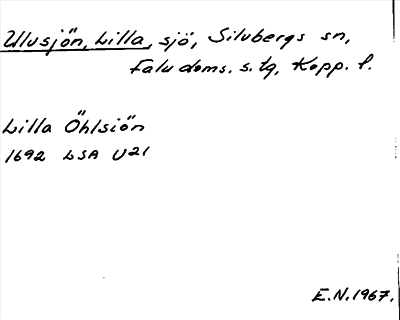 Ulvsjön, Lilla, sjö, Silvbergs sn,
Falu doms. s. tg, Kopp. l.
Lilla Öhlsiön
1692 LSA U21
E.N. 1967.